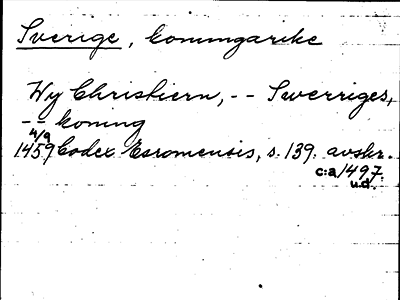 Sverige, konungarike
Wy Christiern, -- Swerriges,
-- koning
4/9
1459 Codex Esromensis, s. 139. avskr.
c:a 1497.
u.d.